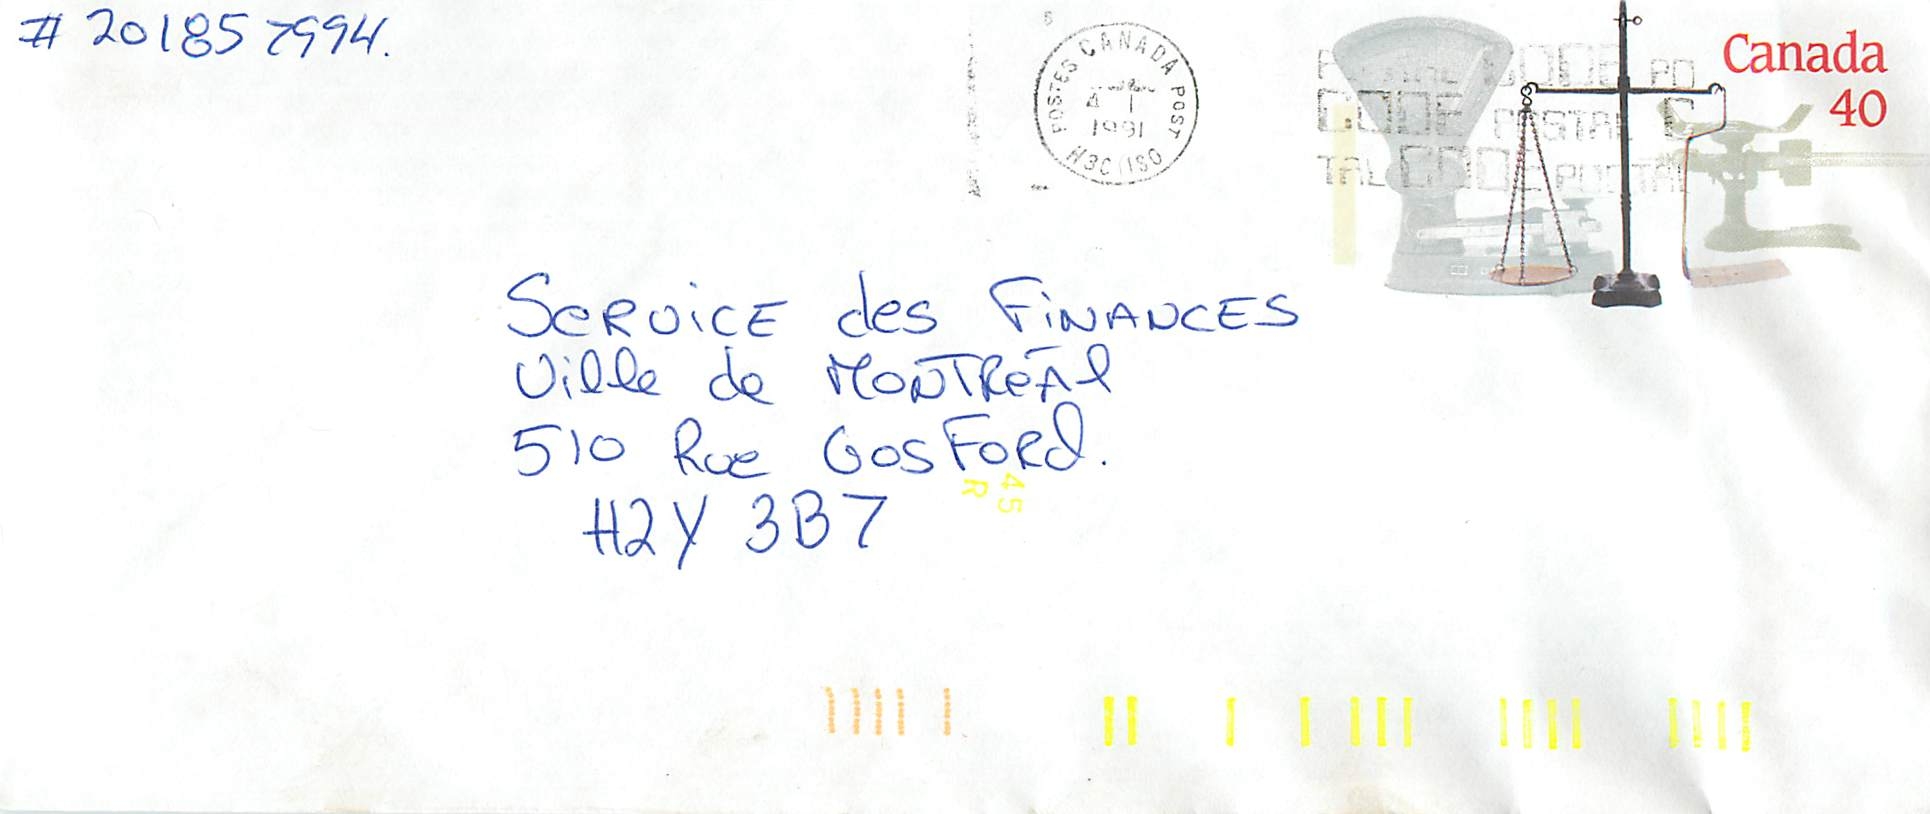 # 201857994.
POSTES CANADA POST
1991
H3C 1S0
Canada
40
CODE POSTAL
TAL CODE POSTAL
SERVICE des FINANCES
Ville de MONTRÉAl
510 Rue GOSFORd.
H2Y 3B7
45
R